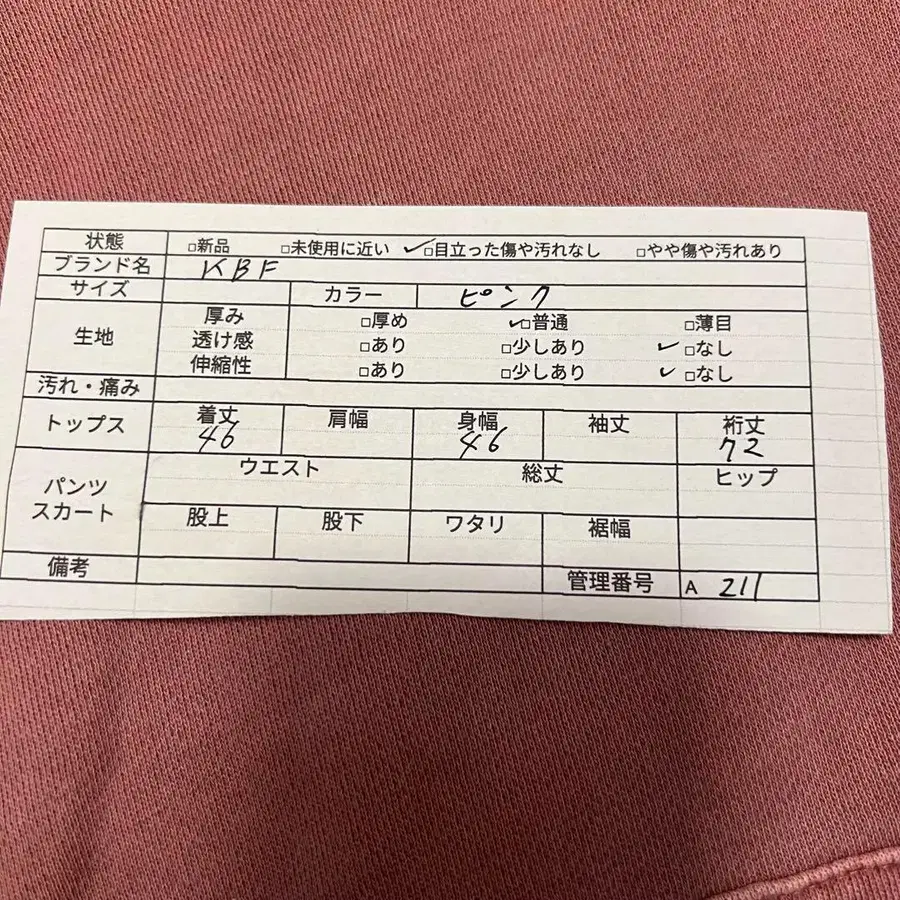 状態 □新品 □未使用に近い ✓□目立った傷や汚れなし □やや傷や汚れあり
ブランド名 KBF
サイズ カラー ピンク
生地 厚み □厚め ✓□普通 □薄目
透け感 □あり □少しあり ✓□なし
伸縮性 □あり □少しあり ✓□なし
汚れ・痛み
トップス 着丈 肩幅 身幅 袖丈 裄丈
46 46 72
パンツ スカート ウエスト 総丈 ヒップ
股上 股下 ワタリ 裾幅
備考 管理番号 A 211